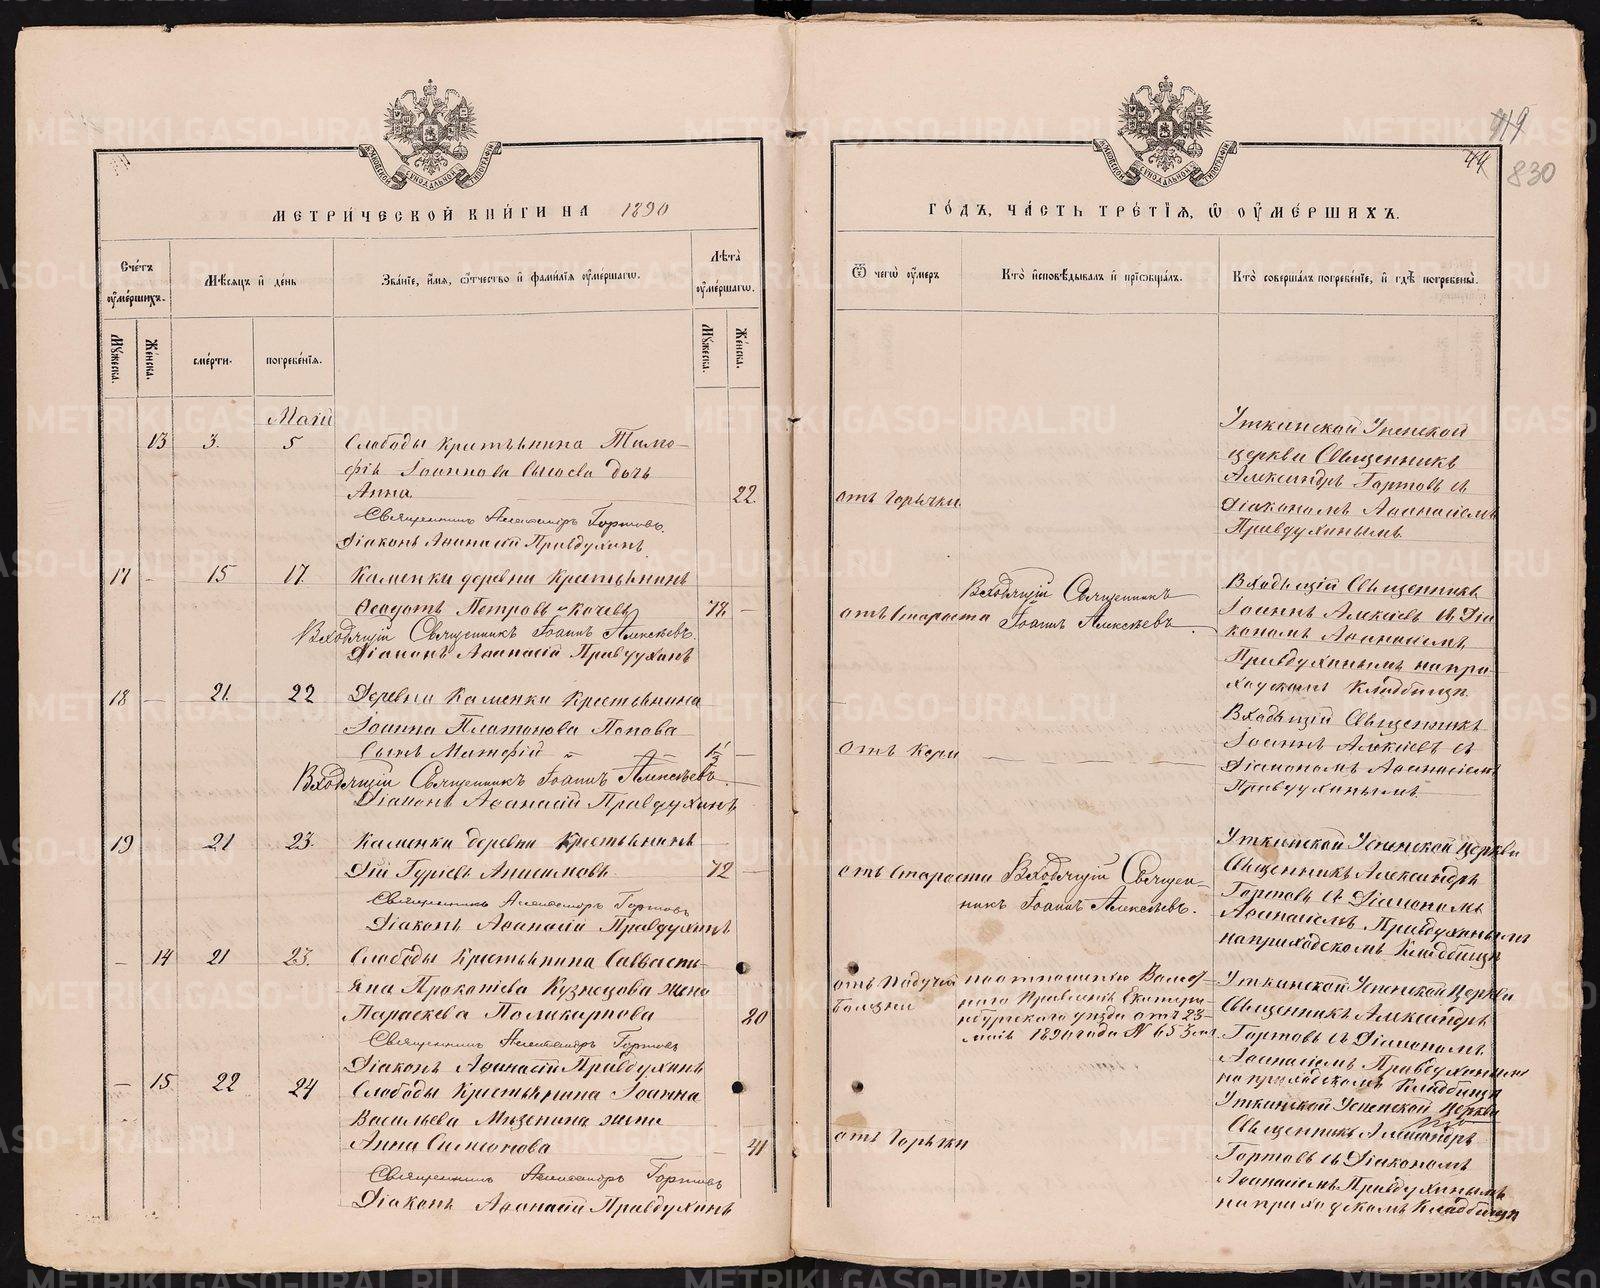 МЕТРИ́ЧЕСКОЙ КНИ́ГИ НА 1890
Сче́тъ ᲂу҆ме́ршихъ.
Мѣ́сѧцъ и҆ де́нь
Зва́нїе, и҆́мѧ, ѻ҆́тчество и҆ фами́лїѧ ᲂу҆ме́ршагѡ.
Лѣ́та ᲂу҆ме́ршагѡ.
Мꙋ́жеска.
Же́нска.
сме́рти.
погребе́нїѧ.
Мꙋ́жеска.
Же́нска.
Маій
13 3. 5 Слободы Крестьянина Тимо-
фѣя Іоаннова Сысоева дочь
Анна 22
Священникъ Александръ Гортовъ.
Діаконъ Аѳанасій Правдухинъ.
17 - 15 17. Каменки деревни Крестьянинъ
Ѳеодотъ Петровъ Кочевъ 78 -
Входящій Священникъ Іоаннъ Алексѣевъ.
Діаконъ Аѳанасій Правдухинъ
18 - 21. 22 Деревни Каменки Крестьянина
Іоанна Платонова Попова
Сынъ Матфій 1½ -
Входящій Священникъ Іоаннъ Алексѣевъ.
Діаконъ Аѳанасій Правдухинъ
19 21 23. Каменки деревни Крестьянинъ
Дій Гуріевъ Анисимовъ 72 -
Священникъ Александръ Гортовъ
Діаконъ Аѳанасій Правдухинъ
- 14 21 23. Слободы Крестьянина Савасть-
яна Прокопіева Кузнецова жена
Параскева Поликарпова 20
Священникъ Александръ Гортовъ
Діаконъ Аѳанасій Правдухинъ
- 15 22 24 Слободы Крестьянина Іоанна
Васильева Мызенина жена
Анна Симеонова - 41
Священникъ Александръ Гортовъ
Діаконъ Аѳанасій Правдухинъ
419
44
830
ГО́ДЪ, ЧА́СТЬ ТРЕ́ТЇѦ, Ѡ҆ ОУ҆МЕ́РШИХЪ.
Ѿ чегѡ̀ ᲂу҆́меръ
Кто̀ и҆сповѣ́дывалъ и҆ прїѻбща́лъ.
Кто̀ соверша́лъ погребе́нїе, и҆ гдѣ̀ погребены̀.
отъ Горячки
Уткинской Успенской
церкви Священникъ
Александръ Гортовъ съ
Діакономъ Аѳанасіемъ
Правдухинымъ.
отъ Старости
Входящій Священникъ
Іоаннъ Алексѣевъ.
Входящій Священникъ
Іоаннъ Алексѣевъ съ Діа
кономъ Аѳанасіемъ
Правдухинымъ на при-
ходскомъ Кладбищѣ.
отъ Кори
Входящій Священникъ
Іоаннъ Алексѣевъ съ
Діакономъ Аѳанасіемъ
Правдухинымъ.
отъ Старости
Входящій Священ-
никъ Іоаннъ Алексѣевъ.
Уткинской Успенской Церкви
Священникъ Александръ
Гортовъ съ Діакономъ
Аѳанасіемъ Правдухинымъ
на приходскомъ Кладбищѣ
отъ Падучей
болѣзни
по отношенію Волост-
наго Правленія Екатерин-
нбургскаго уѣзда отъ 23
маія 1890 года № 653
Уткинской Успенской Церкви
Священникъ Александръ
Гортовъ съ Діакономъ
Аѳанасіемъ Правдухинымъ
на приходскомъ Кладбищѣ
отъ Горячки
Уткинской Успенской Церкви
Священникъ Александръ
Гортовъ съ Діакономъ
Аѳанасіемъ Правдухинымъ
на приходскомъ Кладбищѣ